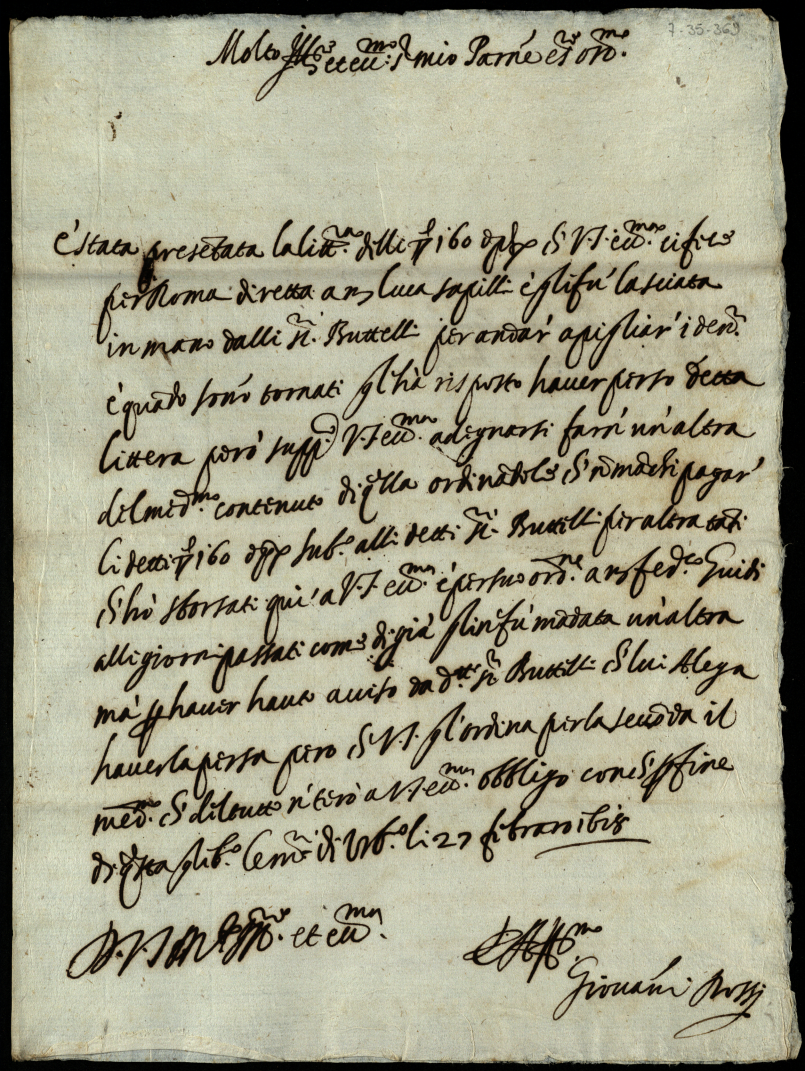 7-35-369
Molto Ill.re et ecc.mo S.r mio Parne et oss.mo
è stata presetata la litt.ra delli 160 ch V.S. ecc.ma ci fece
per Roma diretta a ms luca sapilli è gli fu lasciata
in mano dalli s.ri Buttelli per andar' a pigliar' i den.ri
è quado sono tornati gl'hà risposto haver perso detta
littera però supp. V.S. ecc.ma a degnarsi farn' un'altra
del med.mo contenuto di qlla ordinadole pagar'
li detti 160 sub.o alli detti s.ri Buttelli per altra tati
ch'hò sborsati qui à V.S. ecc.ma è per suo ord.ne a ms fed.co Guidi
alli giorni passati come di già gli ne fu madata un'altra
mà p haver hauto aviso da d.tti s.ri Buttelli ch lui Alega
haverla persa però ch V.S. gl'ordina per la seconda il
med.mo ch del tutto n' terò a V.S. ecc.ma obbligo con ch p fine
di qsta gli b. le mani di Urb.o li 27 febraro 1618
D. V. S. M.to Ill.re et ecc.ma
Aff.mo
Giovanni Rossi